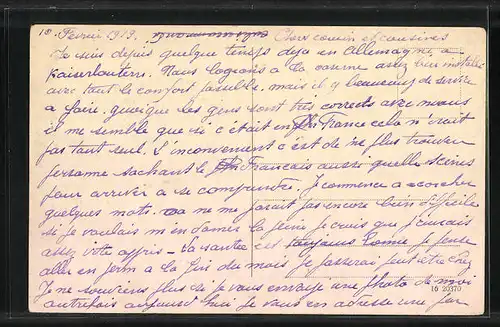 18 Février 1919. Chers cousin et cousines
Je suis depuis quelque temps deja en Allemagne a
Kaiserlautern. Nous logeons a la caserne assez bien installé
avec tout le confort possible. mais il y beaucoup de service
a faire, quoique les gens sont très corrects avec nous
il me semble que si c'était en France cela n'irait
pas tout seul. L'inconvenient c'est de ne plus trouver
personne sachant le Français aussi quelles scènes
pour arriver a se comprendre. Je commence a ecorcher
quelques mots. Ca ne me parait pas encore bien difficile
si je voulais m'en donner la peine je crois que j'aurais
assez vite appris - la santée est toujours bonne je pense
aller en perm a la fin du mois je passerai peut être chez
Je ne souviens plus si je vous envoye une photo de moi
autrefois aujourd'hui je vous en adresse une
16 20370